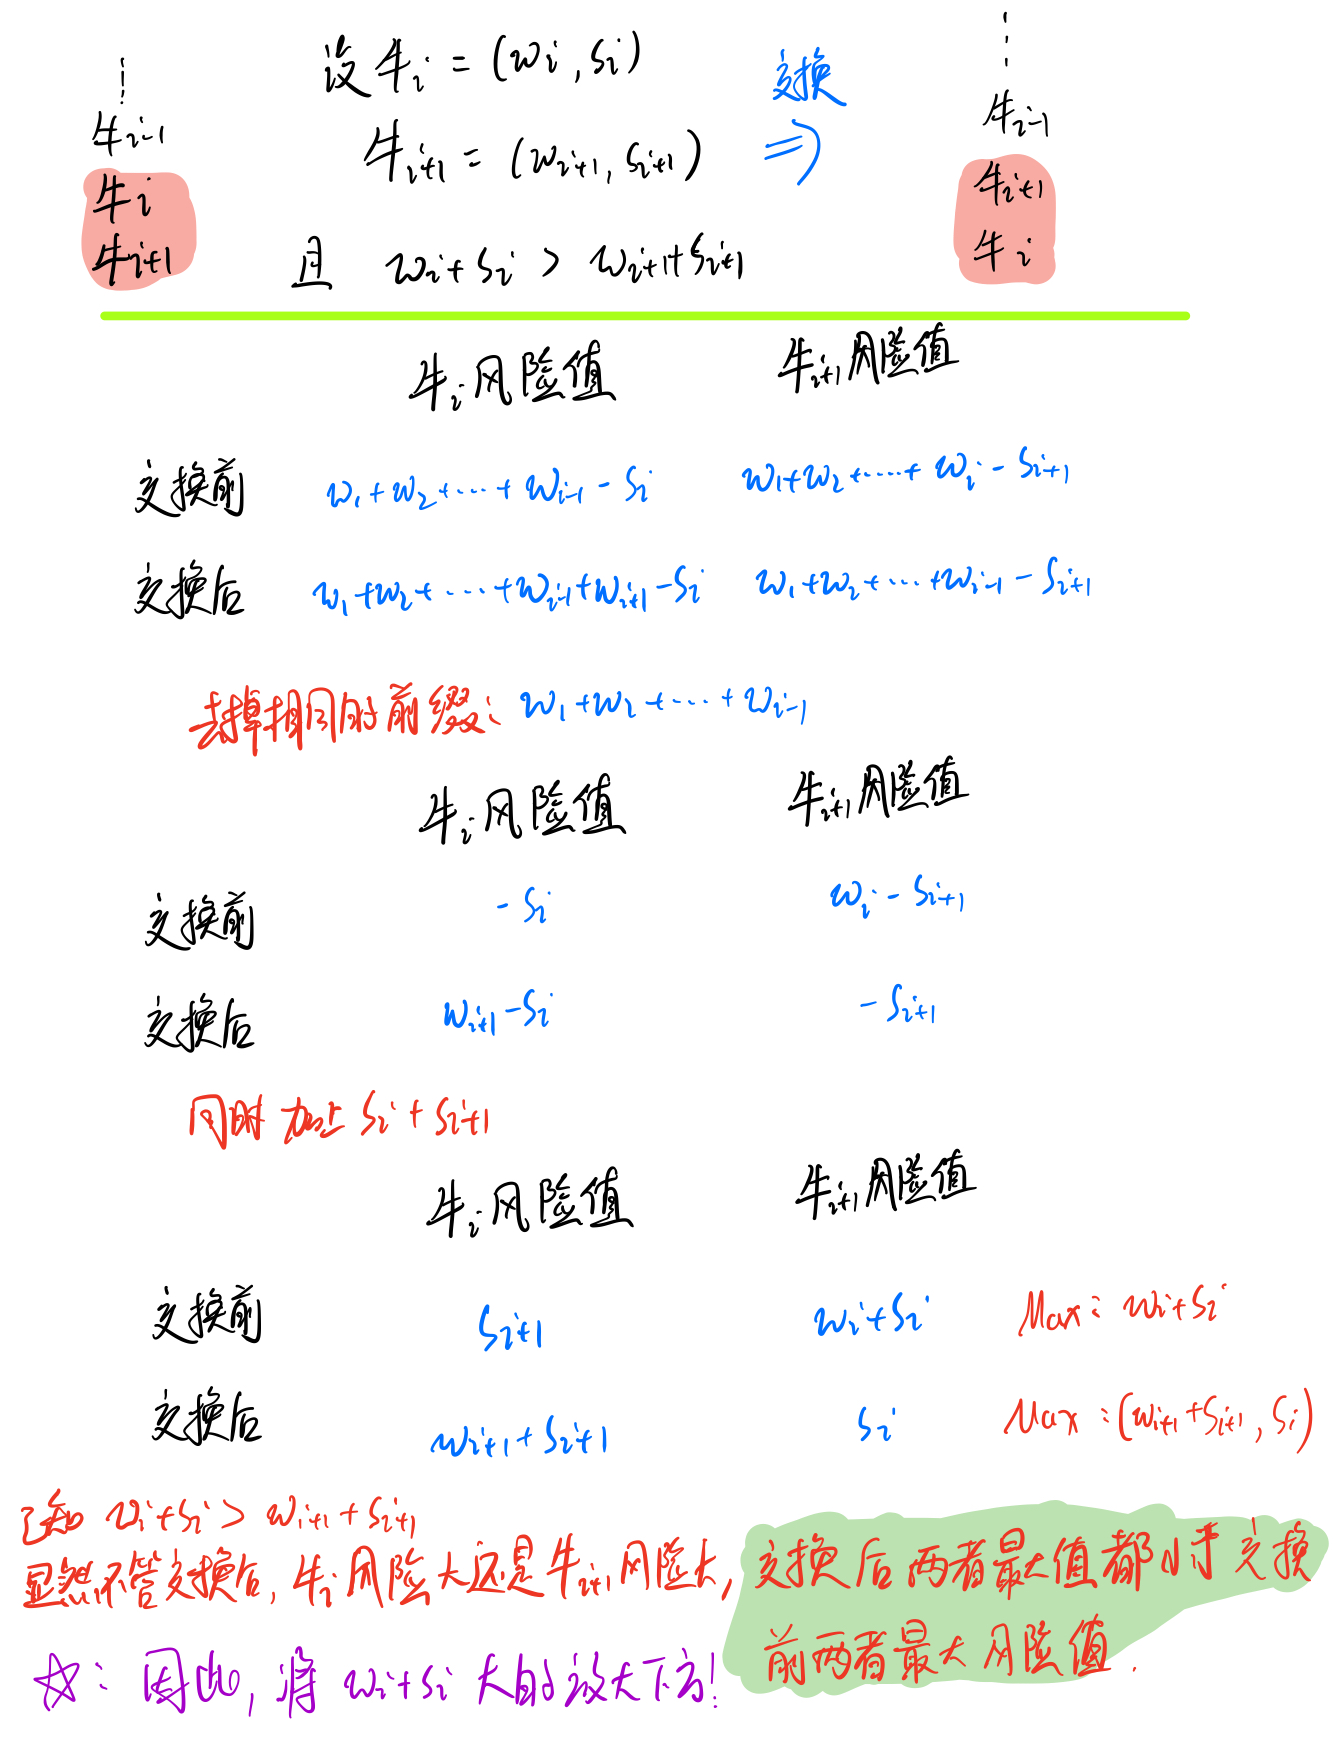 设牛i = (wi, si)
交换
⋮
牛i-1
牛i
牛i+1
牛i+1 = (wi+1, si+1)
⇒
且 wi+si > wi+1+si+1
⋮
牛i-1
牛i+1
牛i
牛i风险值 牛i+1风险值
交换前 w1+w2+…+wi-1-si w1+w2+……+wi-si+1
交换后 w1+w2+…+wi-1+wi+1-si w1+w2+…+wi-1-si+1
去掉相同的前缀: w1+w2+…+wi-1
牛i风险值 牛i+1风险值
交换前 -si wi-si+1
交换后 wi+1-si -si+1
同时加上 si+si+1
牛i风险值 牛i+1风险值
交换前 si+1 wi+si Max: wi+si
交换后 wi+1+si+1 si Max:(wi+1+si+1, si)
已知 wi+si > wi+1+si+1
显然不管交换后,牛i风险大还是牛i+1风险大,交换后两者最大值都小于交换
前两者最大风险值.
☆: 因此,将 wi+si 大的放大下方!